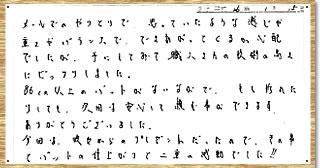 メールでのやりとりで、思っていたような感じが
重さやバランスで、できあがってくるか心配
でしたが、手にしてみて職人さんの技術の高さ
にビックリしました。
86cm以上のバットがないなかで、もし折れた
としても、次回は安心して頼む事ができます。
ありがとうございました。
今回は、彼女からのプレゼントだったので、その事
でバットの仕上がりで二重の感動でした!!